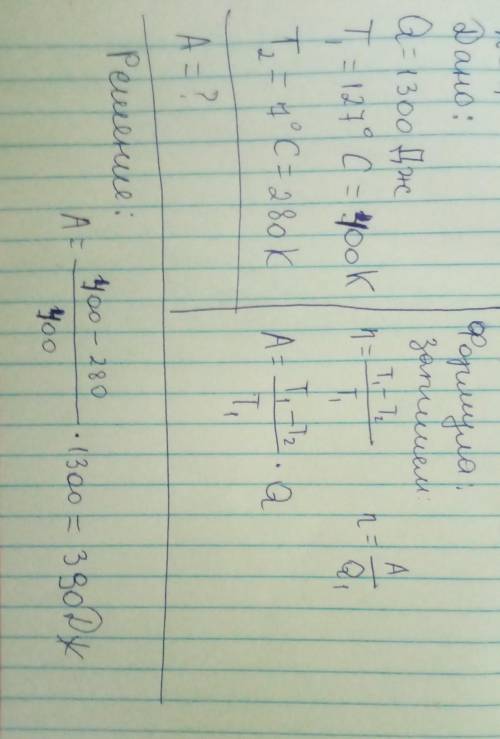 Дано:
Q = 1300 Дж
T₁ = 127° C = 400K
T₂ = 7° C = 280K
A = ?
Формула:
Запишем:
η = (T₁ - T₂) / T₁ η = A / Q₁
A = (T₁ - T₂) / T₁ · Q
Решение:
A = (400 - 280) / 400 · 1300 = 390 Дж